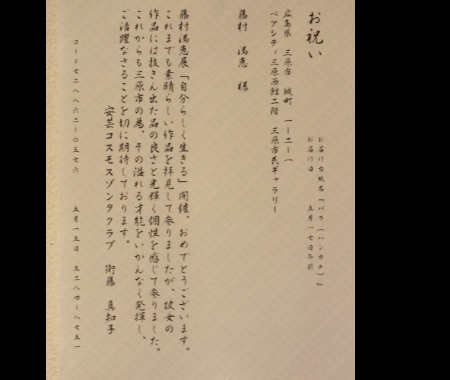 お祝い
お届け台紙名「バラ(ハンカチ)」
お届け日 五月一七日午前
広島県 三原市 城町 一ー二ー一
ペアシティ三原西館二階 三原市民ギャラリー
藤村 満恵 様
藤村満恵展「自分らしく生きる」開催、おめでとうございます。
これまでも素晴らしい作品を拝見して参りましたが、彼女の
作品には抜きん出た品の良さと光輝く個性を感じて参りました。
これからも三原市の為、その溢れる才能をいかんなく発揮し、
ご活躍なさることを切に期待しております。
安芸コスモスゾンタクラブ 衛藤 真知子
五月一五日